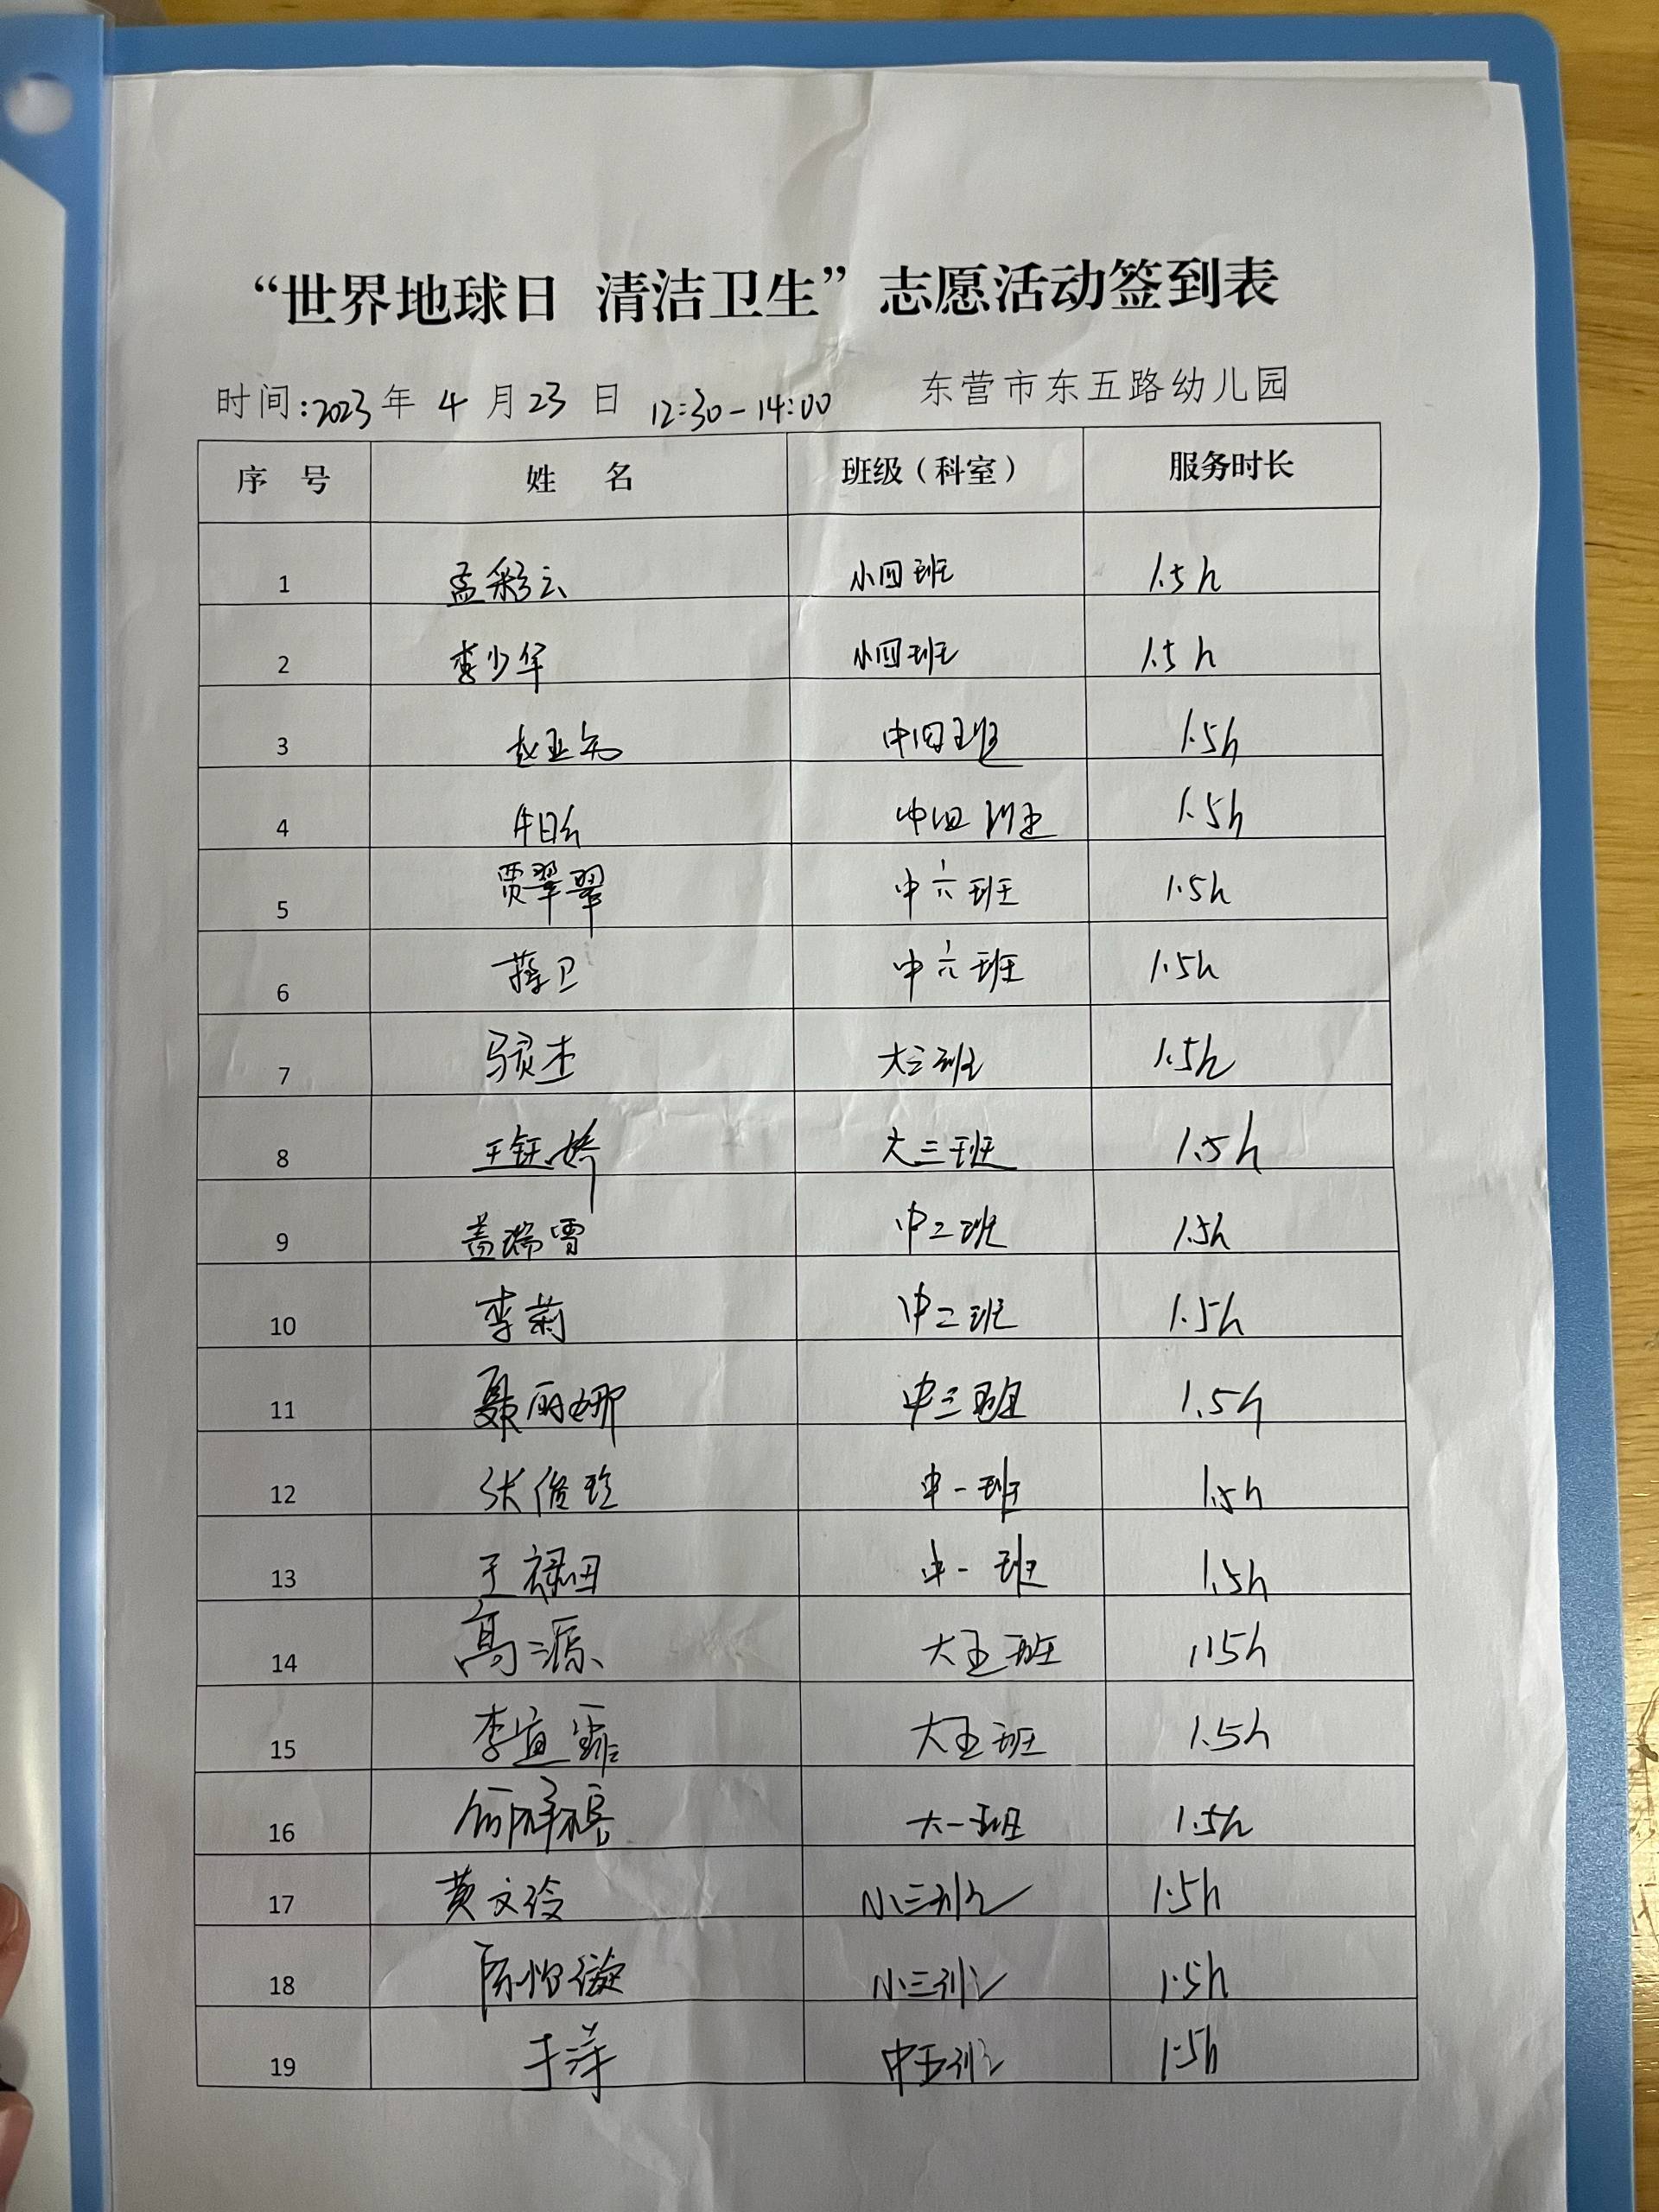 “世界地球日 清洁卫生”志愿活动签到表
时间:2023年 4 月 23 日 12:30-14:00 东营市东五路幼儿园
序 号 姓 名 班级（科室） 服务时长
1 孟彩云 小四班 1.5h
2 李少华 小四班 1.5h
3 赵亚 中四班 1.5h
4 中四班 1.5h
5 贾翠翠 中六班 1.5h
6 薛卫 中六班 1.5h
7 大三班 1.5h
8 王钰娇 大三班 1.5h
9 盖瑞雪 中二班 1.5h
10 李菊 中二班 1.5h
11 聂丽娜 中三班 1.5h
12 张俊玲 中一班 1.5h
13 王 中一班 1.5h
14 高源 大五班 1.5h
15 李宜霏 大五班 1.5h
16 大一班 1.5h
17 黄文玲 小三班 1.5h
18 陈怡璇 小三班 1.5h
19 于萍 中五班 1.5h